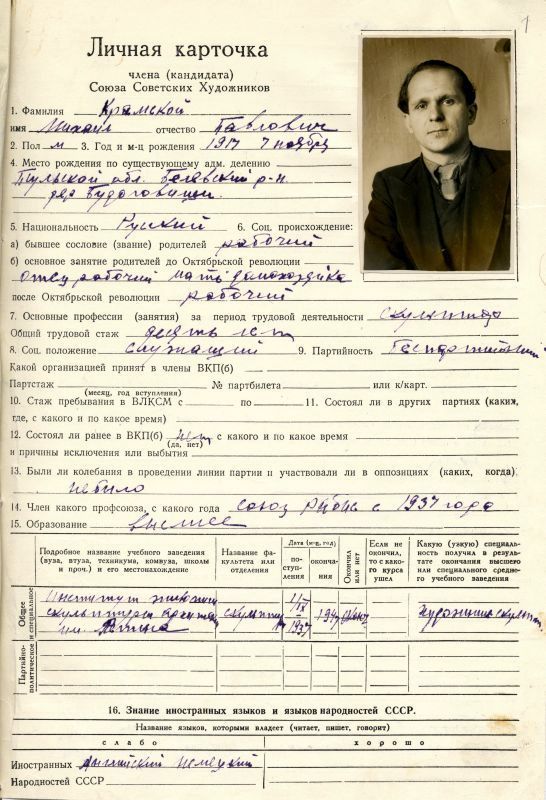 1
Личная карточка
члена (кандидата)
Союза Советских Художников
1. Фамилия Крамской
имя Михаил отчество Павлович
2. Пол м 3. Год и м-ц рождения 1917 7 ноября
4. Место рождения по существующему адм. делению
Тульской обл. Белевский р-н.
дер Будоговищи.
5. Национальность Русский 6. Соц. происхождение:
а) бывшее сословие (звание) родителей рабочий
б) основное занятие родителей до Октябрьской революции
Отец рабочий мать домохозяйка
после Октябрьской революции рабочий
7. Основные профессии (занятия) за период трудовой деятельности скульптор
Общий трудовой стаж десять лет
8. Соц. положение служащий 9. Партийность Беспартийный
Какой организацией принят в члены ВКП(б)
Партстаж № партбилета или к/карт.
(месяц, год вступления)
10. Стаж пребывания в ВЛКСМ с по 11. Состоял ли в других партиях (каких,
где, с какого и по какое время)
12. Состоял ли ранее в ВКП(б) нет с какого и по какое время
(да, нет)
и причины исключения или выбытия
13. Были ли колебания в проведении линии партии и участвовали ли в оппозициях (каких, когда)
небыло
14. Член какого профсоюза, с какого года союз Рабис с 1937 года
15. Образование высшее
Подробное название учебного заведения (вуза, втуза, техникума, комвуза, школы и проч.) и его местонахождение
Название факультета или отделения
Дата (м-ц, год)
поступления
окончания
Окончил или нет
Если не окончил, то с какого курса ушел
Какую (узкую) специальность получил в результате окончания высшего или специального среднего учебного заведения
Общее и специальное
Институт живописи
скульптуры
им Репина
1/IX
1937
194
Партийно-политическое
16. Знание иностранных языков и языков народностей СССР.
Название языков, которыми владеет (читает, пишет, говорит)
слабо хорошо
Иностранных Английский Немецкий
Народностей СССР